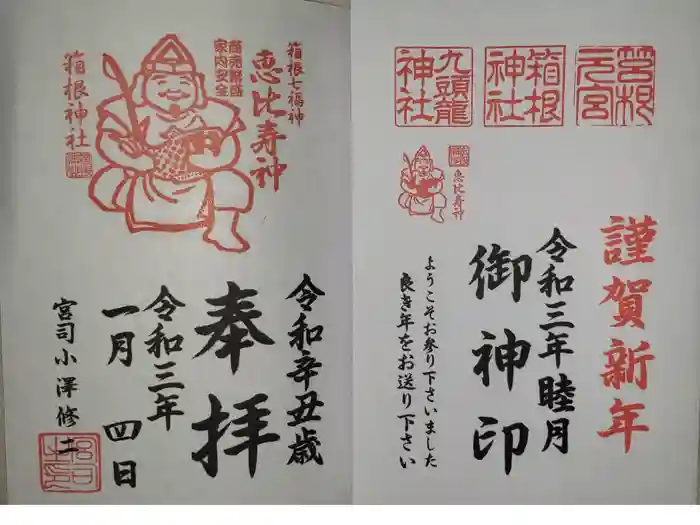 箱根七福神
恵比寿神
商売繁盛
家内安全
箱根神社
令和辛丑歳
奉拝
令和三年
一月四日
宮司小澤修二
箱根元宮
箱根神社
九頭龍神社
恵比寿神
謹賀新年
令和三年睦月
御神印
ようこそお参り下さいました
良き年をお送り下さい